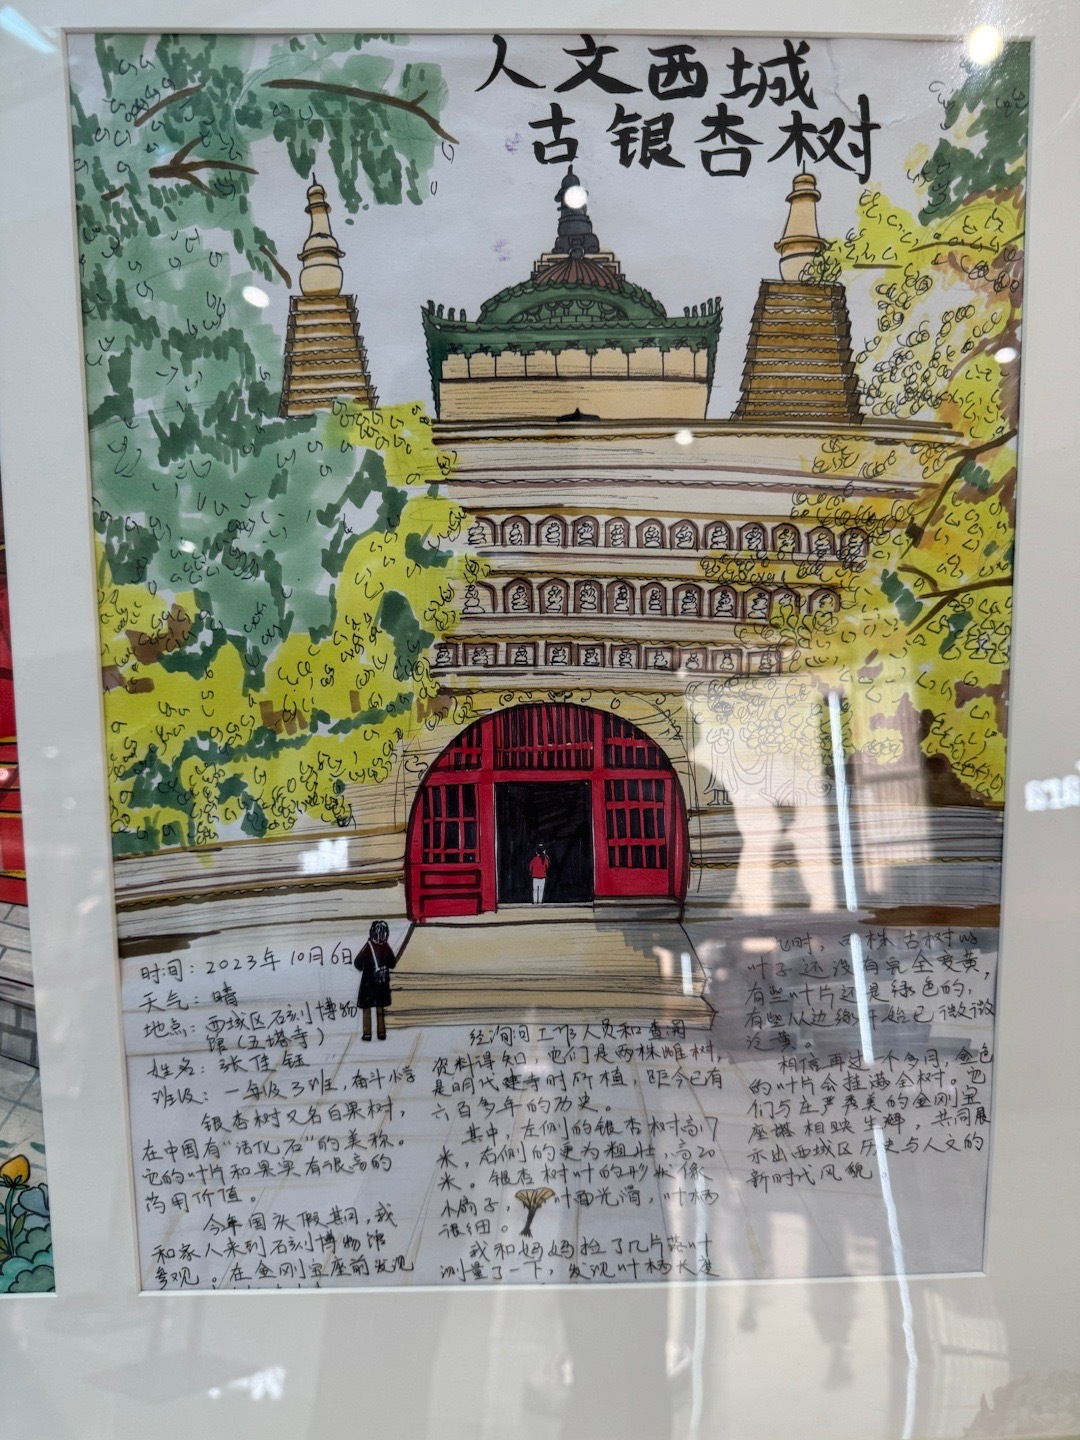 人文西城
古银杏树
时间：2023年10月6日
天气：晴
地点：西城区石刻博物
馆（五塔寺）
姓名：张佳钰
班级：一年级3班，奋斗小学
银杏树又名白果树，
在中国有“活化石”的美称。
它的叶片和果实有很高的
药用价值。
今年国庆假期间，我
和家人来到石刻博物馆
参观。在金刚宝座前发现
经询问工作人员和查阅
资料得知，他们是两株雌树，
是明代建寺时所植，距今已有
六百多年的历史。
其中，左侧的银杏树高17
米，右侧的更为粗壮，高20
米。银杏树叶的形状像
小扇子，叶面光滑，叶柄
很细。
我和妈妈捡了几片落叶
测量了一下，发现叶柄长度
此时，两株古树的
叶子还没有完全变黄，
有些叶片还是绿色的，
有些从边缘开始已微微
泛黄。
相信再过一个多月，金色
的叶片会挂满全树。它
们与庄严秀美的金刚宝
座塔相映生辉，共同展
示出西城区历史与人文的
新时代风貌。